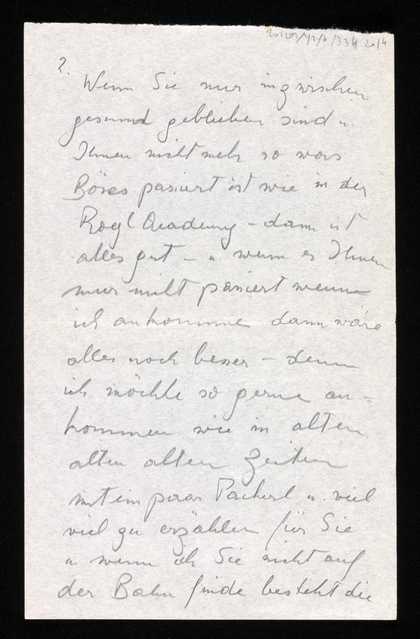 2.
Wenn Sie nur inzwischen
gesund geblieben sind u.
Ihnen nicht mehr so was
Böses pasiert ist wie in der
Royl Academy – dann ist
alles gut – u wenn es Ihnen
nur nicht pasiert wenn
ich ankomme dann wäre
alles noch besser – denn
ich möchte so gerne an=
kommen wie in alten
alten alten Zeiten
mit ein paar Packerl u. viel
viel zu erzählen für Sie
u wenn ich Sie nicht auf
der Bahn finde besteht die